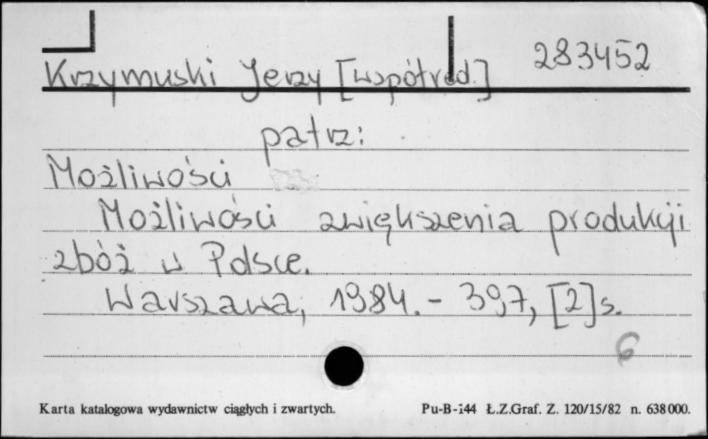 283452
Krzymuski Jerzy [współred.]
patrz:
Możliwości
Możliwości zwiększenia produkcji
zbóż w Polsce.
Warszawa, 1984. - 397, [2]s.
6
Karta katalogowa wydawnictw ciągłych i zwartych. Pu-B-144 Ł.Z.Graf. Z. 120/15/82 n. 638000.